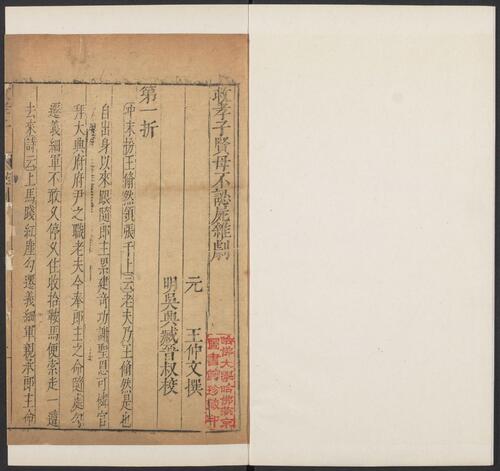 救孝子賢母不認屍雜劇
元 王仲文撰
明吳興臧晉叔校
第一折
冲末扮王脩然領張千上云老夫乃王脩然是也
自出身以來跟隨郎主累建奇功謝聖恩可憐官
拜大興府府尹之職老夫今奉郎主之命隨處勾
遷義細軍不敢久停久住收拾鞍馬便索走一遭
去來詩云上馬踐紅塵勾遷義細軍親承郎主命
哈佛大學哈佛燕京
圖書館珍藏印